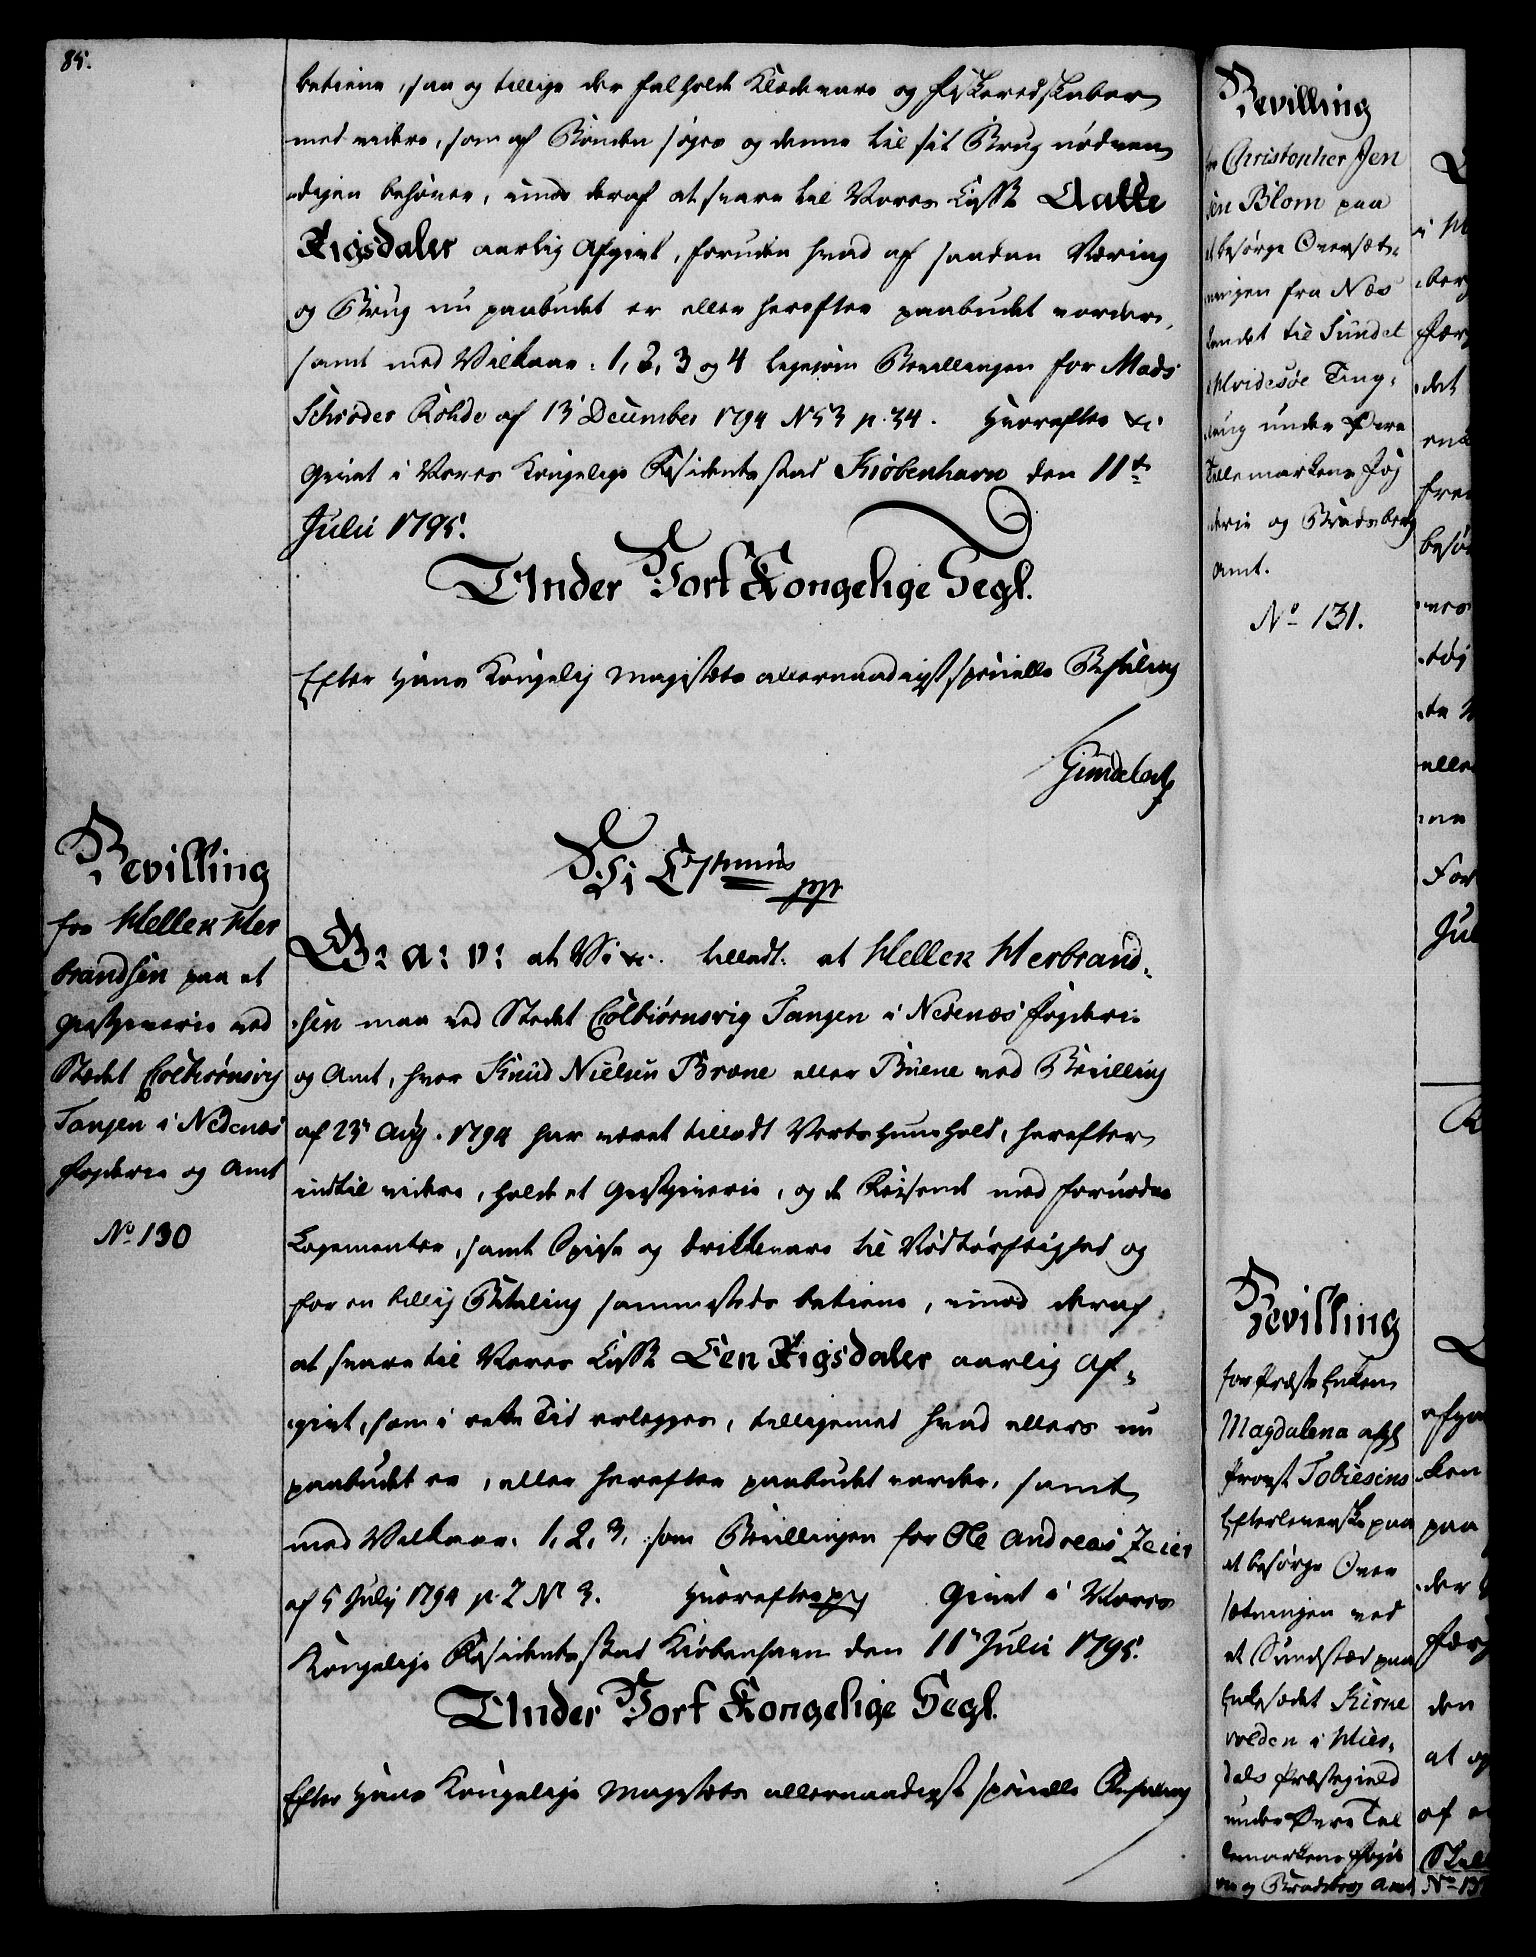 85.
betiene, saa og tillige der falholde Klædevare og Fiskeredskaber
med videre, som af Bonden søges og denne til sit Brug nødven
digen behøver, imod deraf at svare til Vores Cassa Aatte
Rigsdaler aarlig Afgivt, foruden hvad af saadan Næring
og Brug nu paabudet er eller herefter paabudet vorder,
samt med Vilkaar: 1, 2, 3 og 4 ligesom Bevillingen for Mads
Schrøder Rohde af 13 December 1794 N 53 p. 34. Hvorefter &c
Givet i Vores Kongelige Residentsstad Kiøbenhavn den 11te
Julii 1795.
Under Vort Kongelige Segl.
Efter Hans Kongelig Majestæts allernaadigst specielle Befaling
Gundelach
Bevilling
for Hellek Her
brandsen paa et
Giestgiverie ved
Stædet Colbiørnsvig
Tangen i Nedenæs
Fogderie og Amt
No 130
Vi C 7timus
ppp
G: A: V: at Vi &c. tilladt. at Hellek Herbrand-
-sen maa ved Stedet Colbiørnsvig Tangen i Nedenæs Fogderi
og Amt, hvor Knud Nielsen Brone eller Buene ved Bevilling
af 23 Aug. 1794 har været tilladt Vertshuushold, herefter
indtil videre, holde et Giestgiverie, og de Reisende med fornødne
Logementer, samt Spise og Drikkevare til Nødtørftighed og
for en billig Betaling sammesteds betiene, imod deraf
at svare til Vores Cassa Een Rigsdaler aarlig Af-
-givt, som i rette Tid erlægges, tilligemed hvad ellers nu
paabudet er, eller herefter paabudet vorder, samt
med Vilkaar: 1, 2, 3, som Bevillingen for Ole Andreas Zeier
af 5 Julij 1794 p. 2 N 3. Hvorefter pp Givet i Vores
Kongelige Residentsstad Kiøbenhavn den 11 Julii 1795.
Under Vort Kongelige Segl.
Efter Hans Kongelige Majestæts allernaadigst specielle Befaling
Bevilling
for Christopher Jen
sen Blom paa
at besørge Oversæt-
ningen fra Næs
landet til Sundet
Hvidesøe Ting-
laug under Øvre
Tellemarkens Fog
derie og Bradsberg
Amt.
No 131.
Bevilling
for Præste Enken
Magdalena afg
Provst Tobiesens
Efterleverske paa
at besørge Over
sætningen ved
et Sundsted paa
Enkesædet Kirke
volden i Hier-
dals Præstegield
under Øvre Tel
lemarkens Fogde
rie og Bradsberg Amt